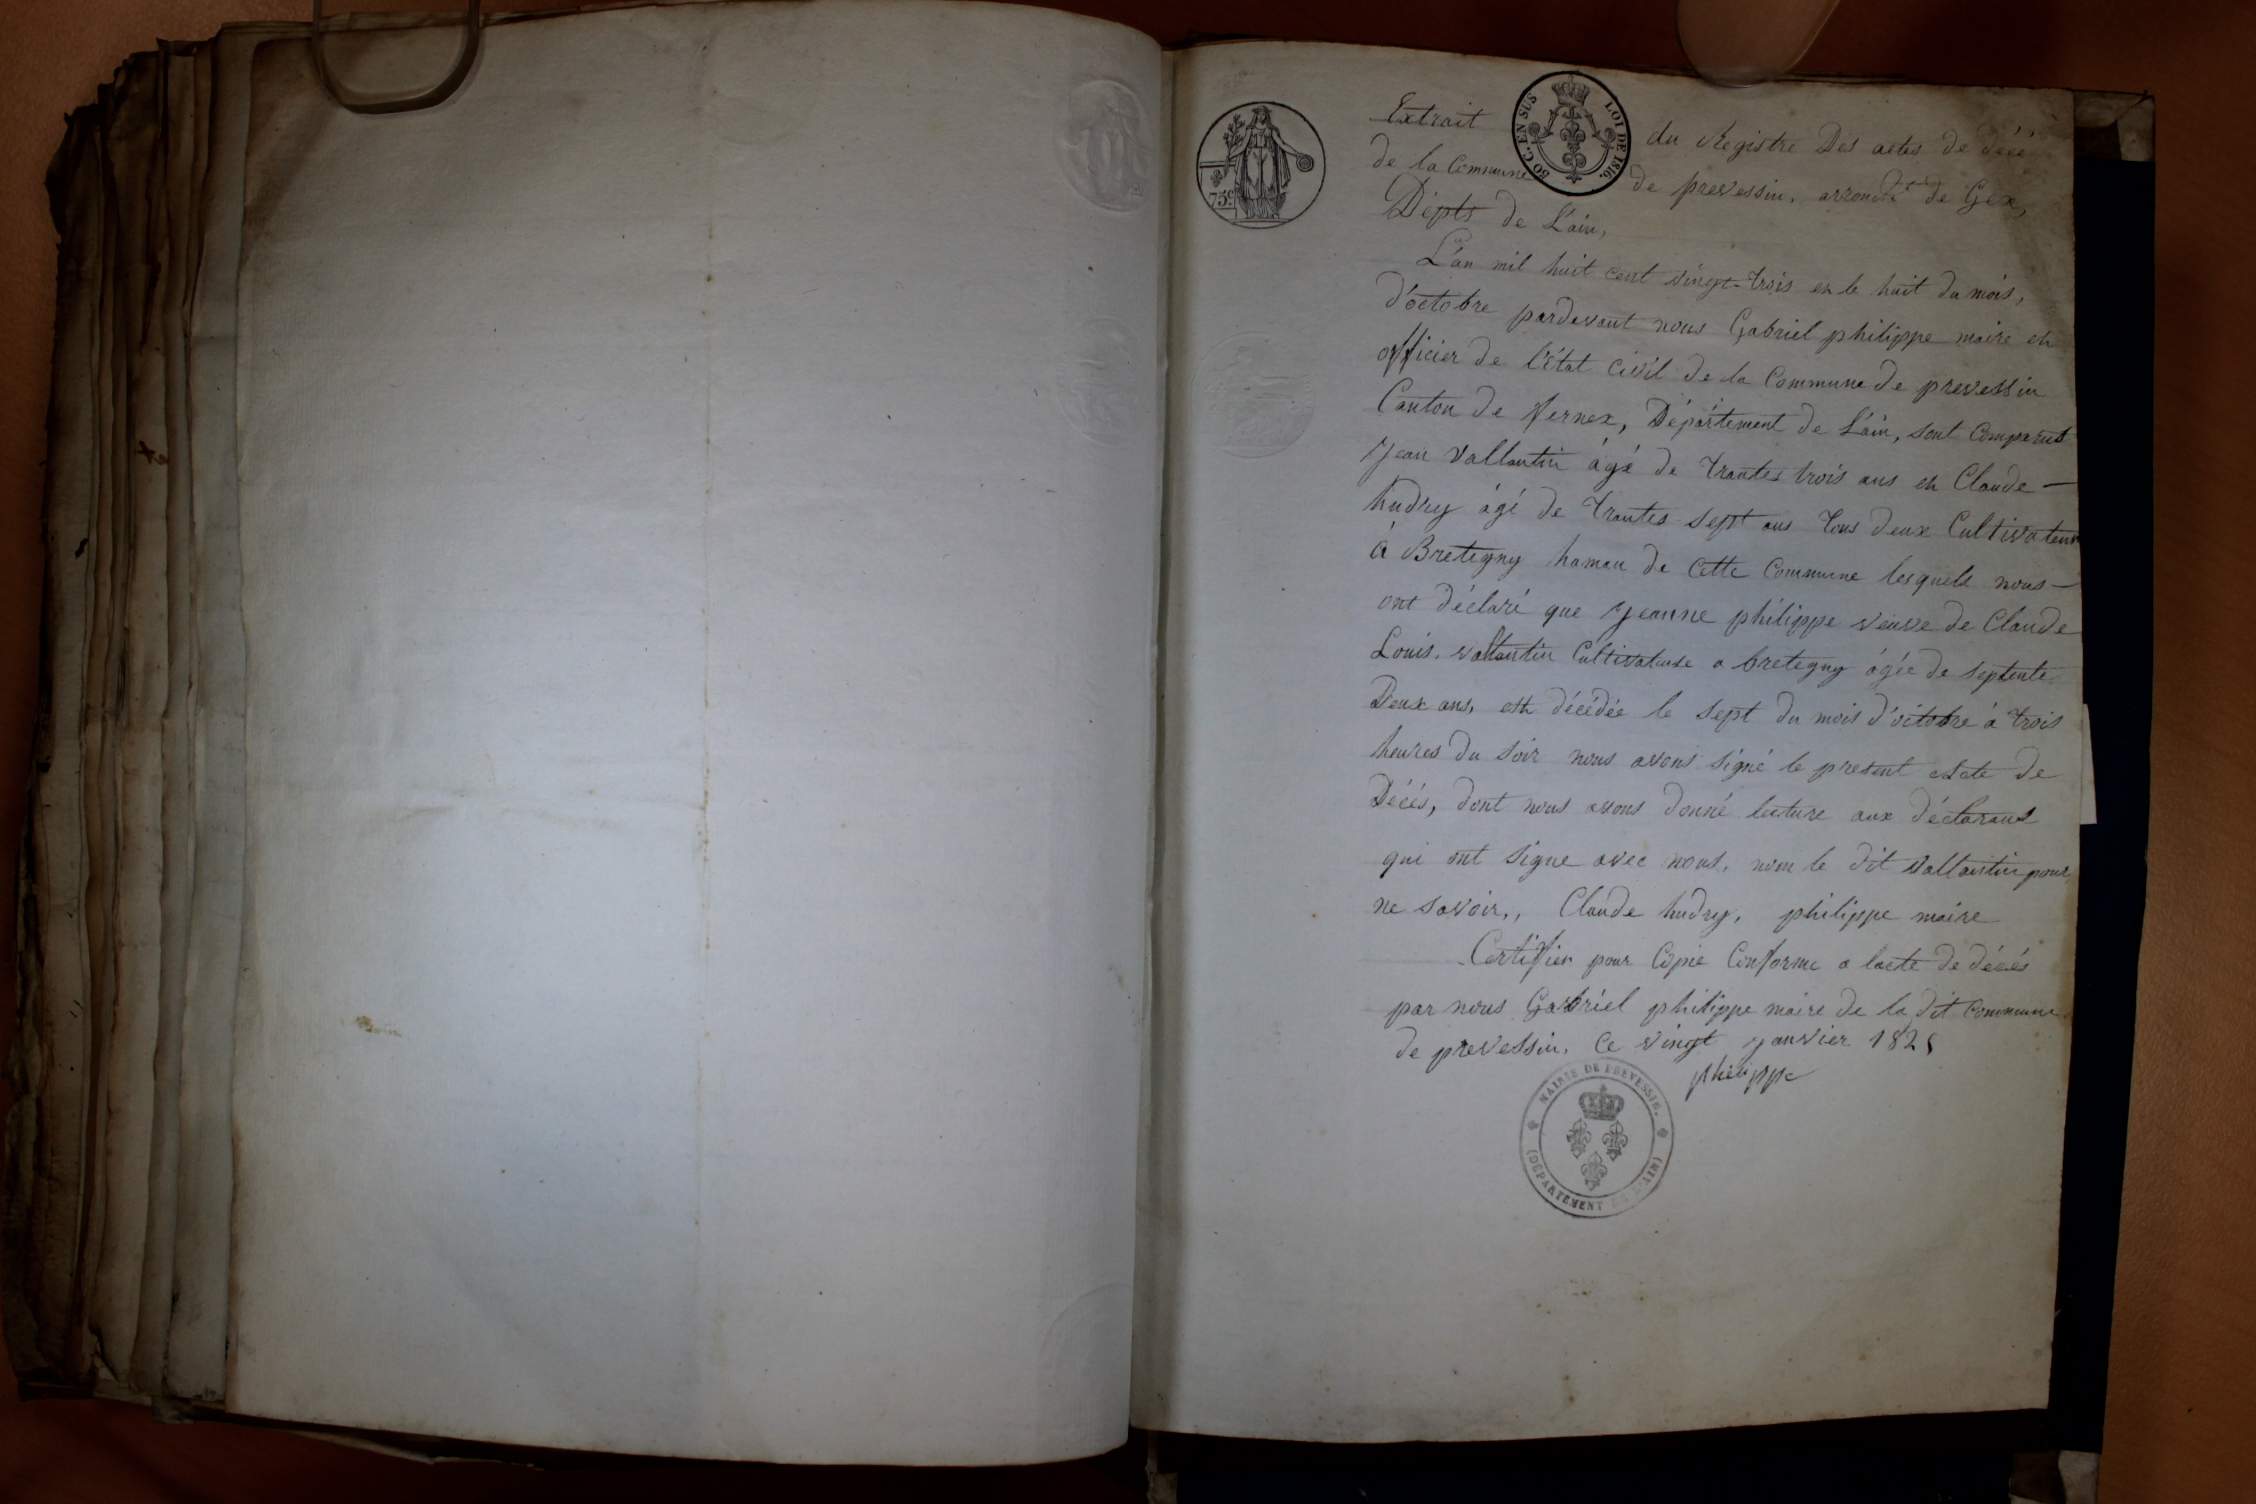 Extrait du Registre Des actes de décé
de la Commune de prevessin, arrondt de Gex,
Dépts de L'ain,
L'an mil huit cent vingt-trois et le huit du mois,
d'octobre pardevant nous Gabriel philippe maire et
officier de l'état civil de la Commune de prevessin
Canton de fernex, Département de L'ain, sont Comparut
Jean Vallantin âgé de trantes trois ans et Claude —
hudry âgé de trantes sept ans tous deux Cultivateur
à Bretegny hamau de cette Commune lesquels nous —
ont déclaré que Jeanne philippe veuve de Claude
Louis. vallantin Cultivateuse a bretegny âgée de septente
Deux ans, est décédée le sept du mois d'octobre à trois
heures du soir nous avons signé le present acte de
Décés, dont nous avons donné lecture aux déclarant
qui ont signe avec nous, non le dit vallantin pour
ne savoir,, Claude hudry, philippe maire
Certifier pour Copie Conforme a lacte de décés
par nous Gabriel philippe maire de la dit Commune
de prevessin, Ce vingt janvier 1825
philippe
75c
50 C. EN SUS LOI DE 1816.
MAIRIE DE PREVESSIN.
(DÉPARTEMENT DE L'AIN)